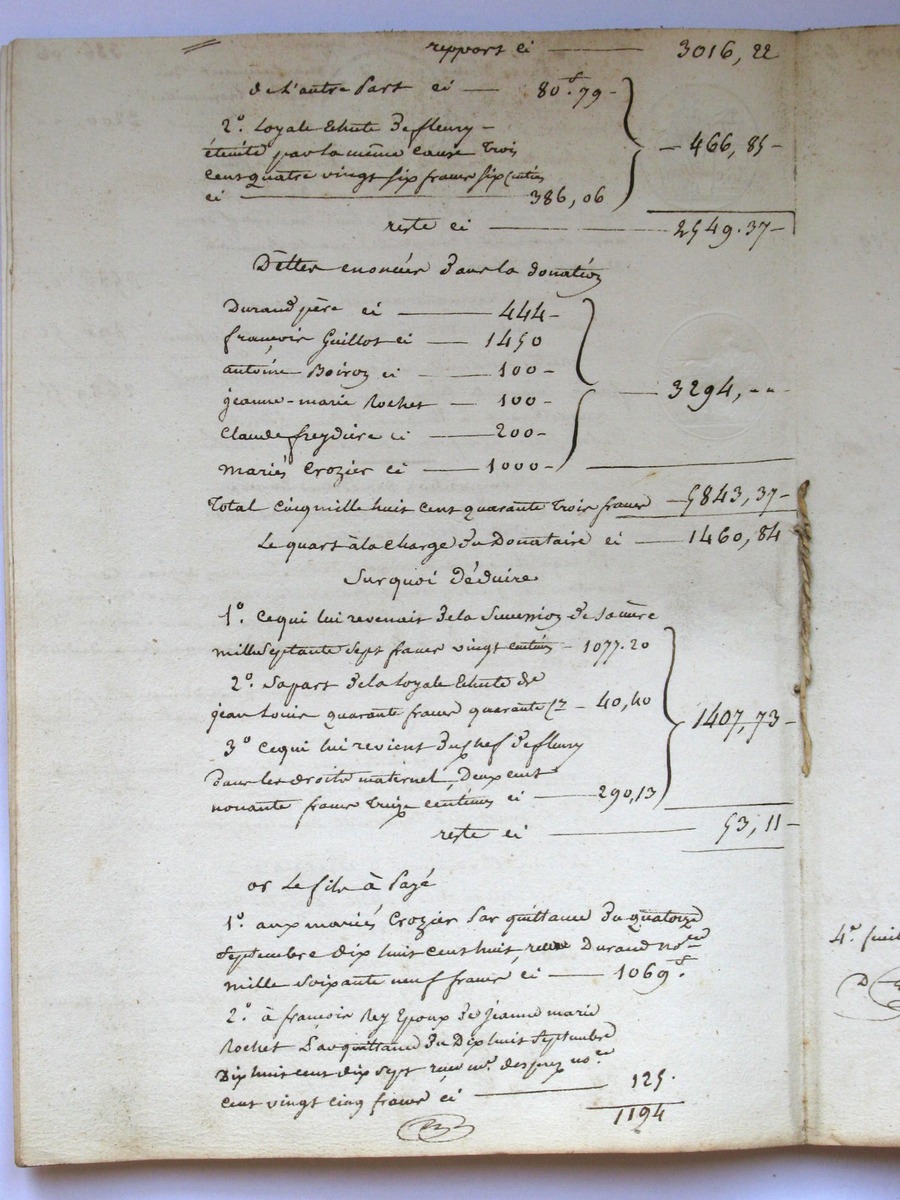 repport ci — 3016, 22
de l'autre part ci — 80f.79 -
2o. Loyale Echute de fleury -
éteinte par la même cause trois
cens quatre vingt six francs six centimes
ci — 386,06
— 466, 85 -
reste ci — 2549.37 -
Dettes enoncées dans la donation
Durand père ci — 444 -
françois Guillot ci — 1450
antoine Boiron ci — 100 -
jeanne-marie Rochet — 100 -
Claude freydière ci — 200 -
mariés Crozier ci — 1000 -
— 3294, - -
Total cinq mille huit cent quarante trois francs — 5843,37 -
Le quart à la charge du Donataire ci — 1460, 84
Surquoi déduire
1o. ce qui lui revenait de la Succession de sa mère
mille septante sept francs vingt centimes — 1077.20
2o. sa part de la loyale Echute de
jean Louis quarante francs quarante cmes — 40,40
3o ce qui lui revient du chef de fleury
dans les droits maternel, Deux cent
nonante francs treize centimes ci — 290,13
1407,73 -
reste ci — 53, 11 -
or Le fils à Payé
1o. aux mariés Crozier par quittance du quatorze
septembre dix huit cent huit, reçue Durand nore
mille soixante neuf francs ci — 1069f.
2o. à francois Rey Epoux de jeanne marie
Rochet par quittance du Dix huit septembre
Dix huit cent dix sept reçue me. desprez nore
cent vingt cinq francs ci — 125.
1194
4e. feuil
D